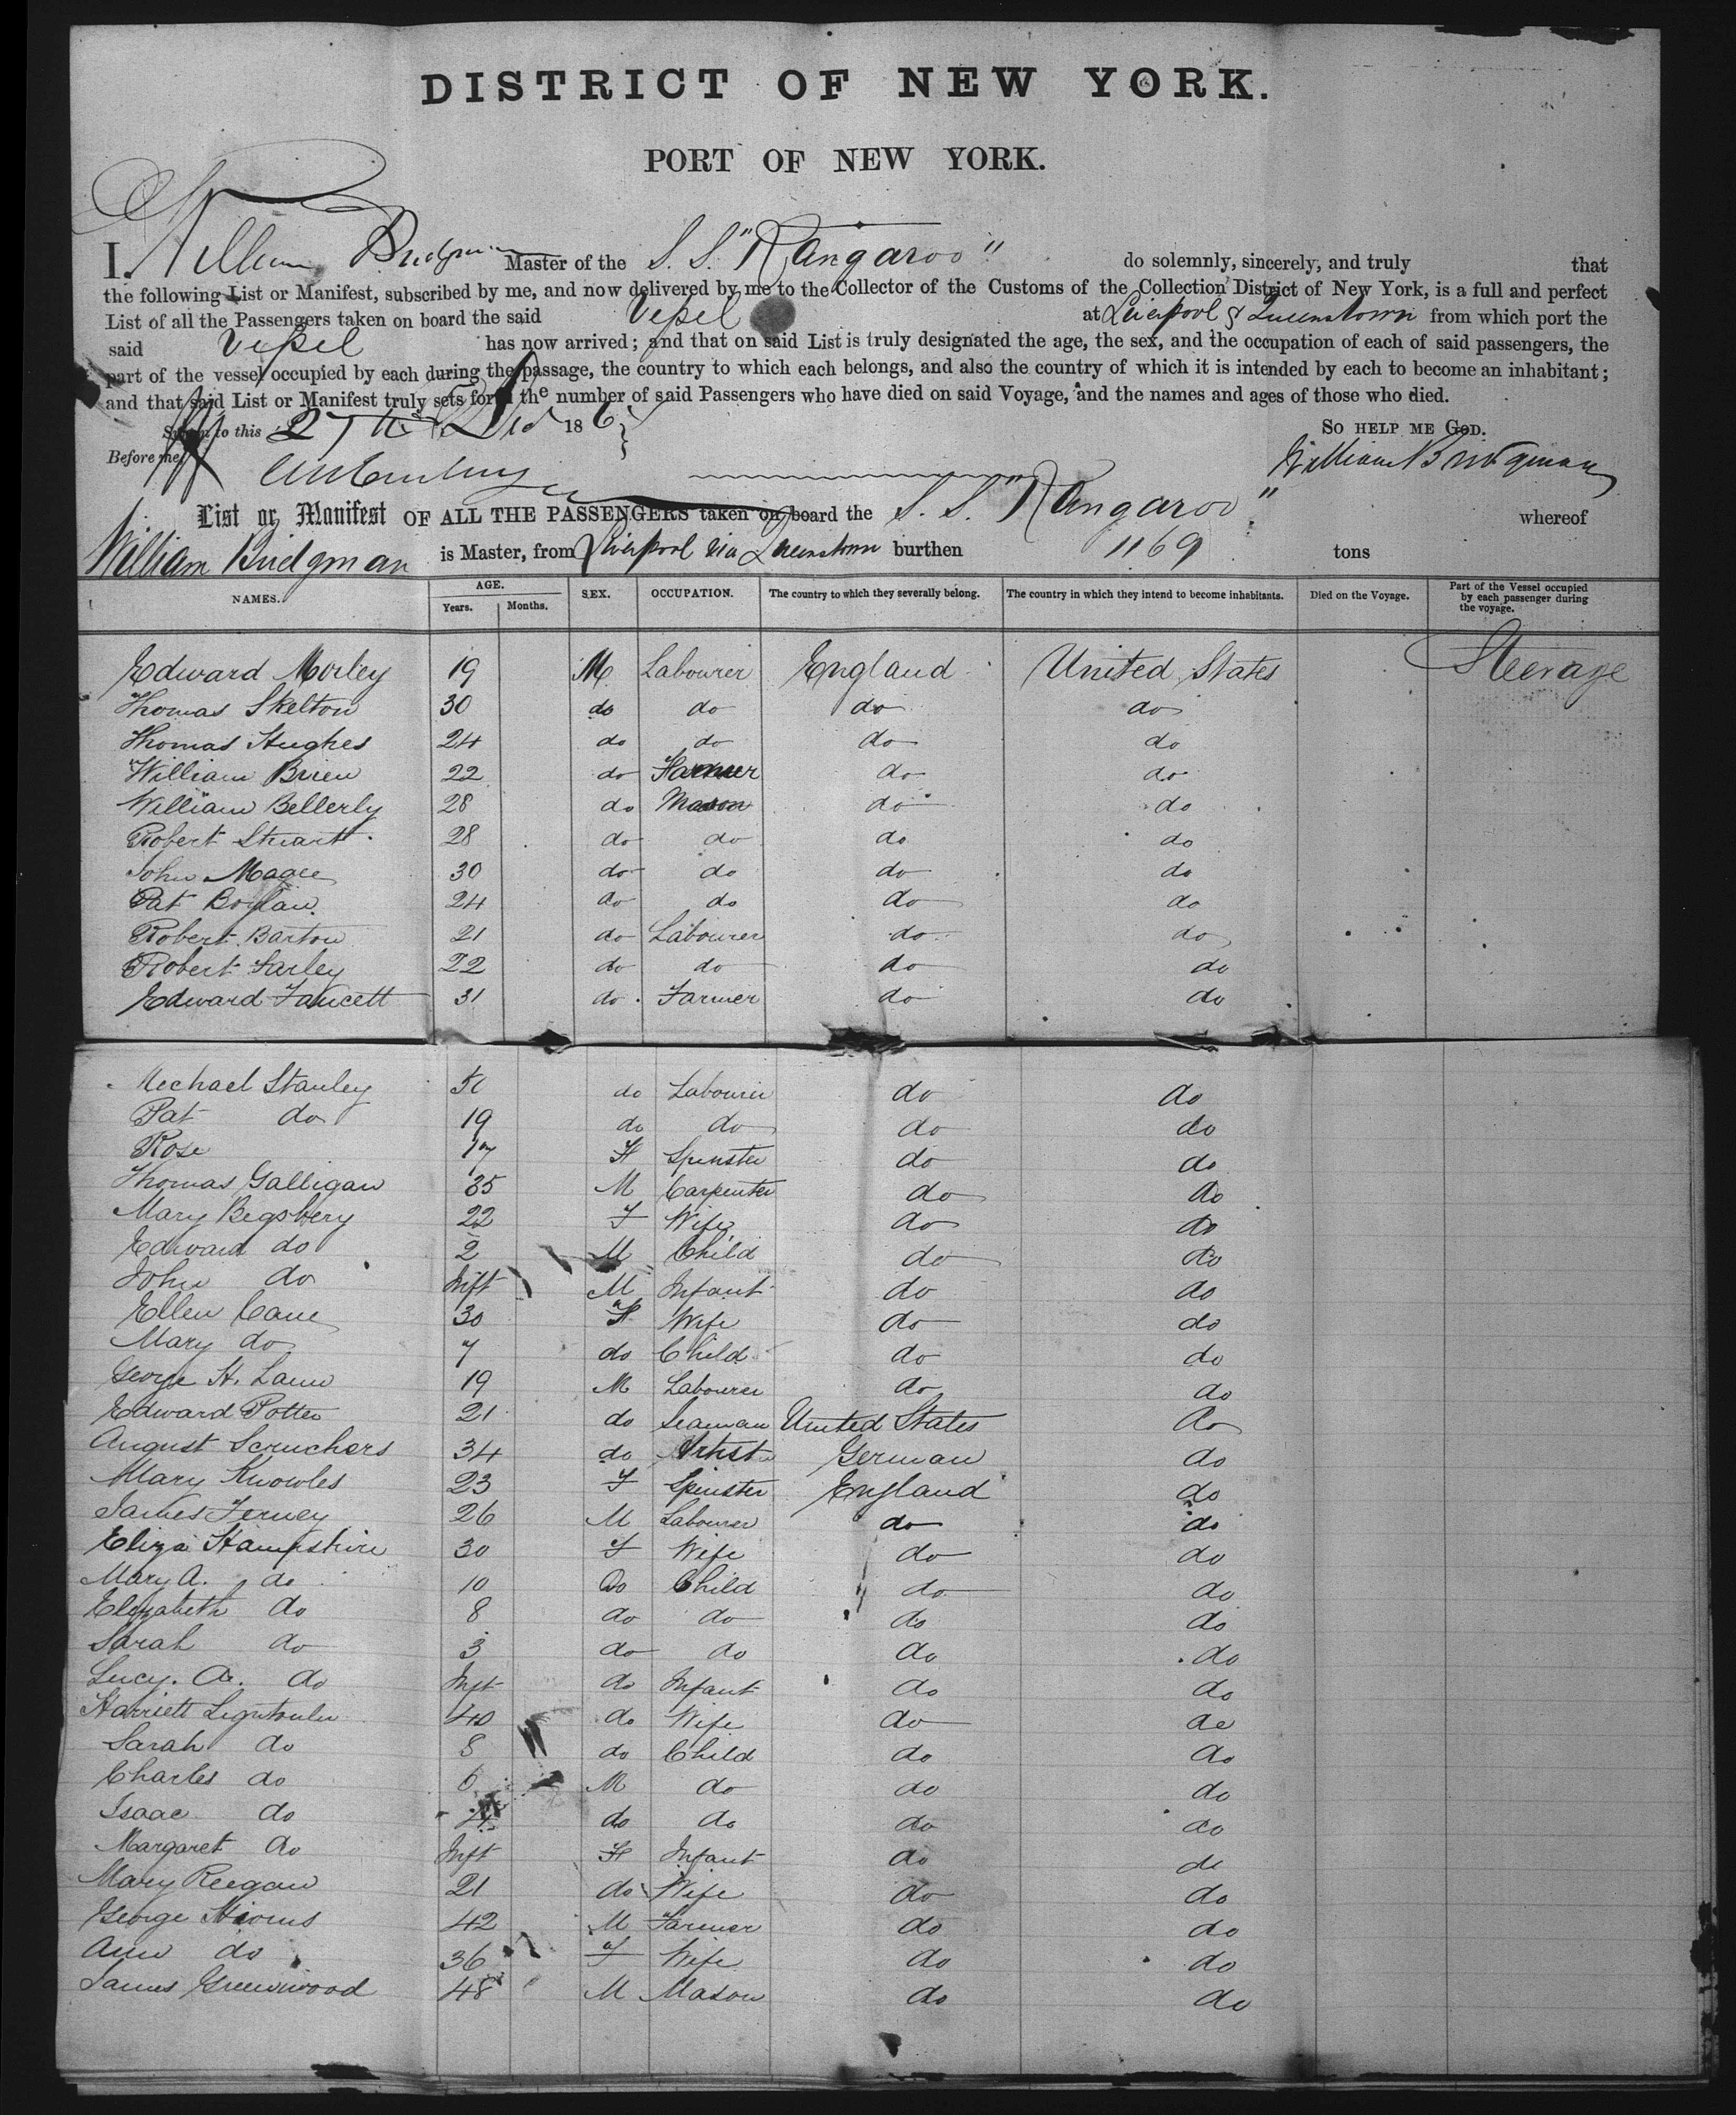 DISTRICT OF NEW YORK.
PORT OF NEW YORK.
I. William Bridgman Master of the S. S. "Kangaroo" do solemnly, sincerely, and truly that
the following List or Manifest, subscribed by me, and now delivered by me to the Collector of the Customs of the Collection District of New York, is a full and perfect
List of all the Passengers taken on board the said Vessel at Liverpool & Queenstown from which port the
said Vessel has now arrived; and that on said List is truly designated the age, the sex, and the occupation of each of said passengers, the
part of the vessel occupied by each during the passage, the country to which each belongs, and also the country of which it is intended by each to become an inhabitant;
and that said List or Manifest truly sets forth the number of said Passengers who have died on said Voyage, and the names and ages of those who died.
Sworn to this 27th Dec 186 SO HELP ME GOD.
Before me William Bridgman
List or Manifest OF ALL THE PASSENGERS taken on board the S. S. "Kangaroo" whereof
William Bridgman is Master, from Liverpool via Queenstown burthen 1169 tons
NAMES. AGE. Years. Months. SEX. OCCUPATION. The country to which they severally belong. The country in which they intend to become inhabitants. Died on the Voyage. Part of the Vessel occupied by each passenger during the voyage.
Edward Morley 19 M Labourer England United States Steerage
Thomas Skelton 30 do do do do
Thomas Hughes 24 do do do do
William Brien 22 do Farmer do do
William Bellerly 28 do Mason do do
Robert Stuart 28 do do do do
John Magee 30 do do do do
Pat Boylan 24 do do do do
Robert Barton 21 do Labourer do do
Robert Farley 22 do do do do
Edward Faucett 31 do Farmer do do
Michael Stanley do Labourer do do
Pat do 19 do do do do
Rose 17 F Spinster do do
Thomas Galligan 35 M Carpenter do do
Mary Begsbery 22 F Wife do do
Edward do 2 M Child do do
John do Inft M Infant do do
Ellen Cane 30 F Wife do do
Mary do 7 do Child do do
George H. Lamb 19 M Labourer do do
Edward Potter 21 do Seaman United States do
August Scruchers 34 do Artist German do
Mary Knowles 23 F Spinster England do
James Ferney 26 M Labourer do do
Eliza Hampshire 30 F Wife do do
Mary A. do 10 Do Child do do
Elizabeth do 8 do do do do
Sarah do 3 do do do do
Lucy. A. do Inft do Infant do do
Harriett 40 do Wife do do
Sarah do 8 do Child do do
Charles do 6 M do do do
Isaac do 4 do do do do
Margaret do Inft F Infant do do
Mary Reegan 21 do Wife do do
George Hirons 42 M Farmer do do
Ann do 36 F Wife do do
James Greenwood 48 M Mason do do